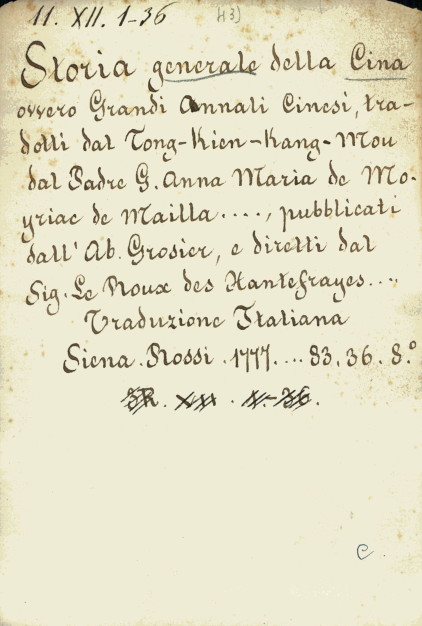 11. XII. 1-36 H3)
Storia generale della Cina
ovvero Grandi Annali Cinesi, tra-
dotti dal Tong-Kien-Kang-Mou
dal Padre G. Anna Maria de Mo-
yriac de Mailla ...., pubblicati
dall' Ab. Grosier, e diretti dal
Sig. Le Roux des Hantefrayes....
Traduzione Italiana
Siena. Rossi. 1777.... 83. 36. 8.°
C.